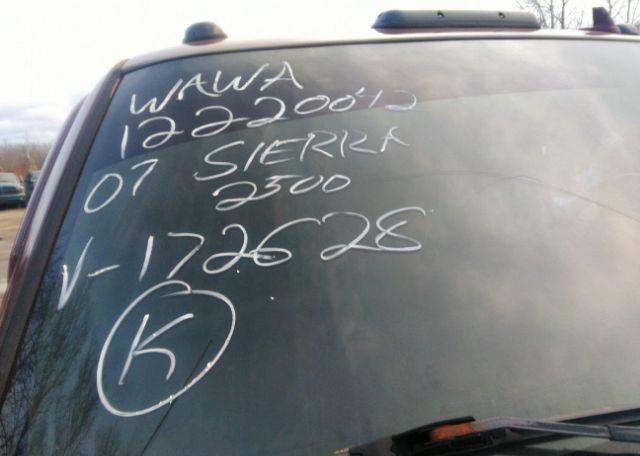 WAWA
12220042
07 SIERRA
2500
V-172628
K